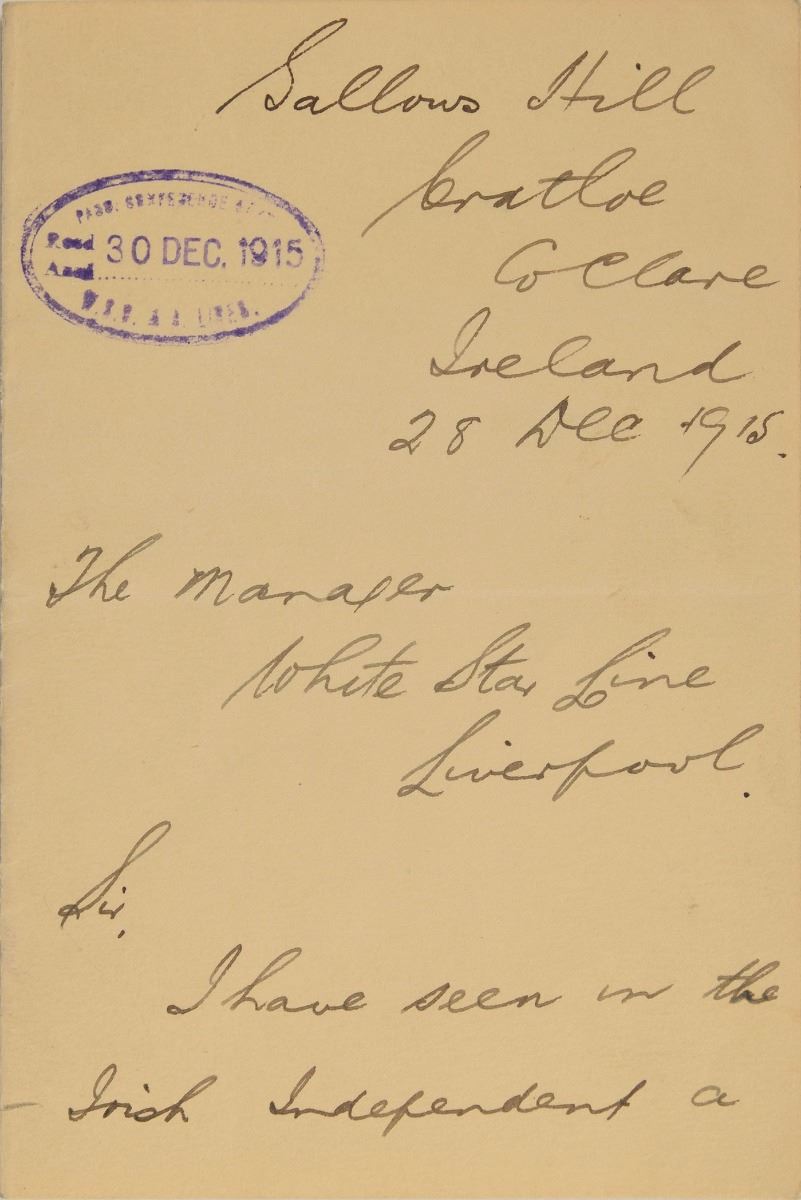 Gallows Hill
Cratloe
Co Clare
Ireland
28 Dec 1915.
PASS. CONFERENCE
Recd 30 DEC. 1915
Ansd
W.S.D. & A. LINES.
The Manager
White Star Line
Liverpool.
Sir,
I have seen in the
Irish Independent a